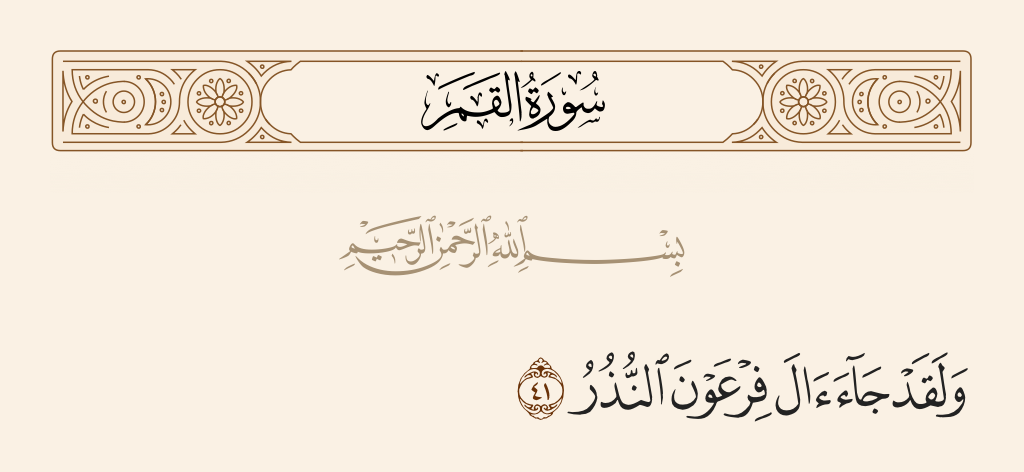 سُورَةُ القَمَرِ
بِسْمِ ٱللَّهِ ٱلرَّحْمَٰنِ ٱلرَّحِيمِ
وَلَقَدْ جَآءَ ءَالَ فِرْعَوْنَ ٱلنُّذُرُ ٤١